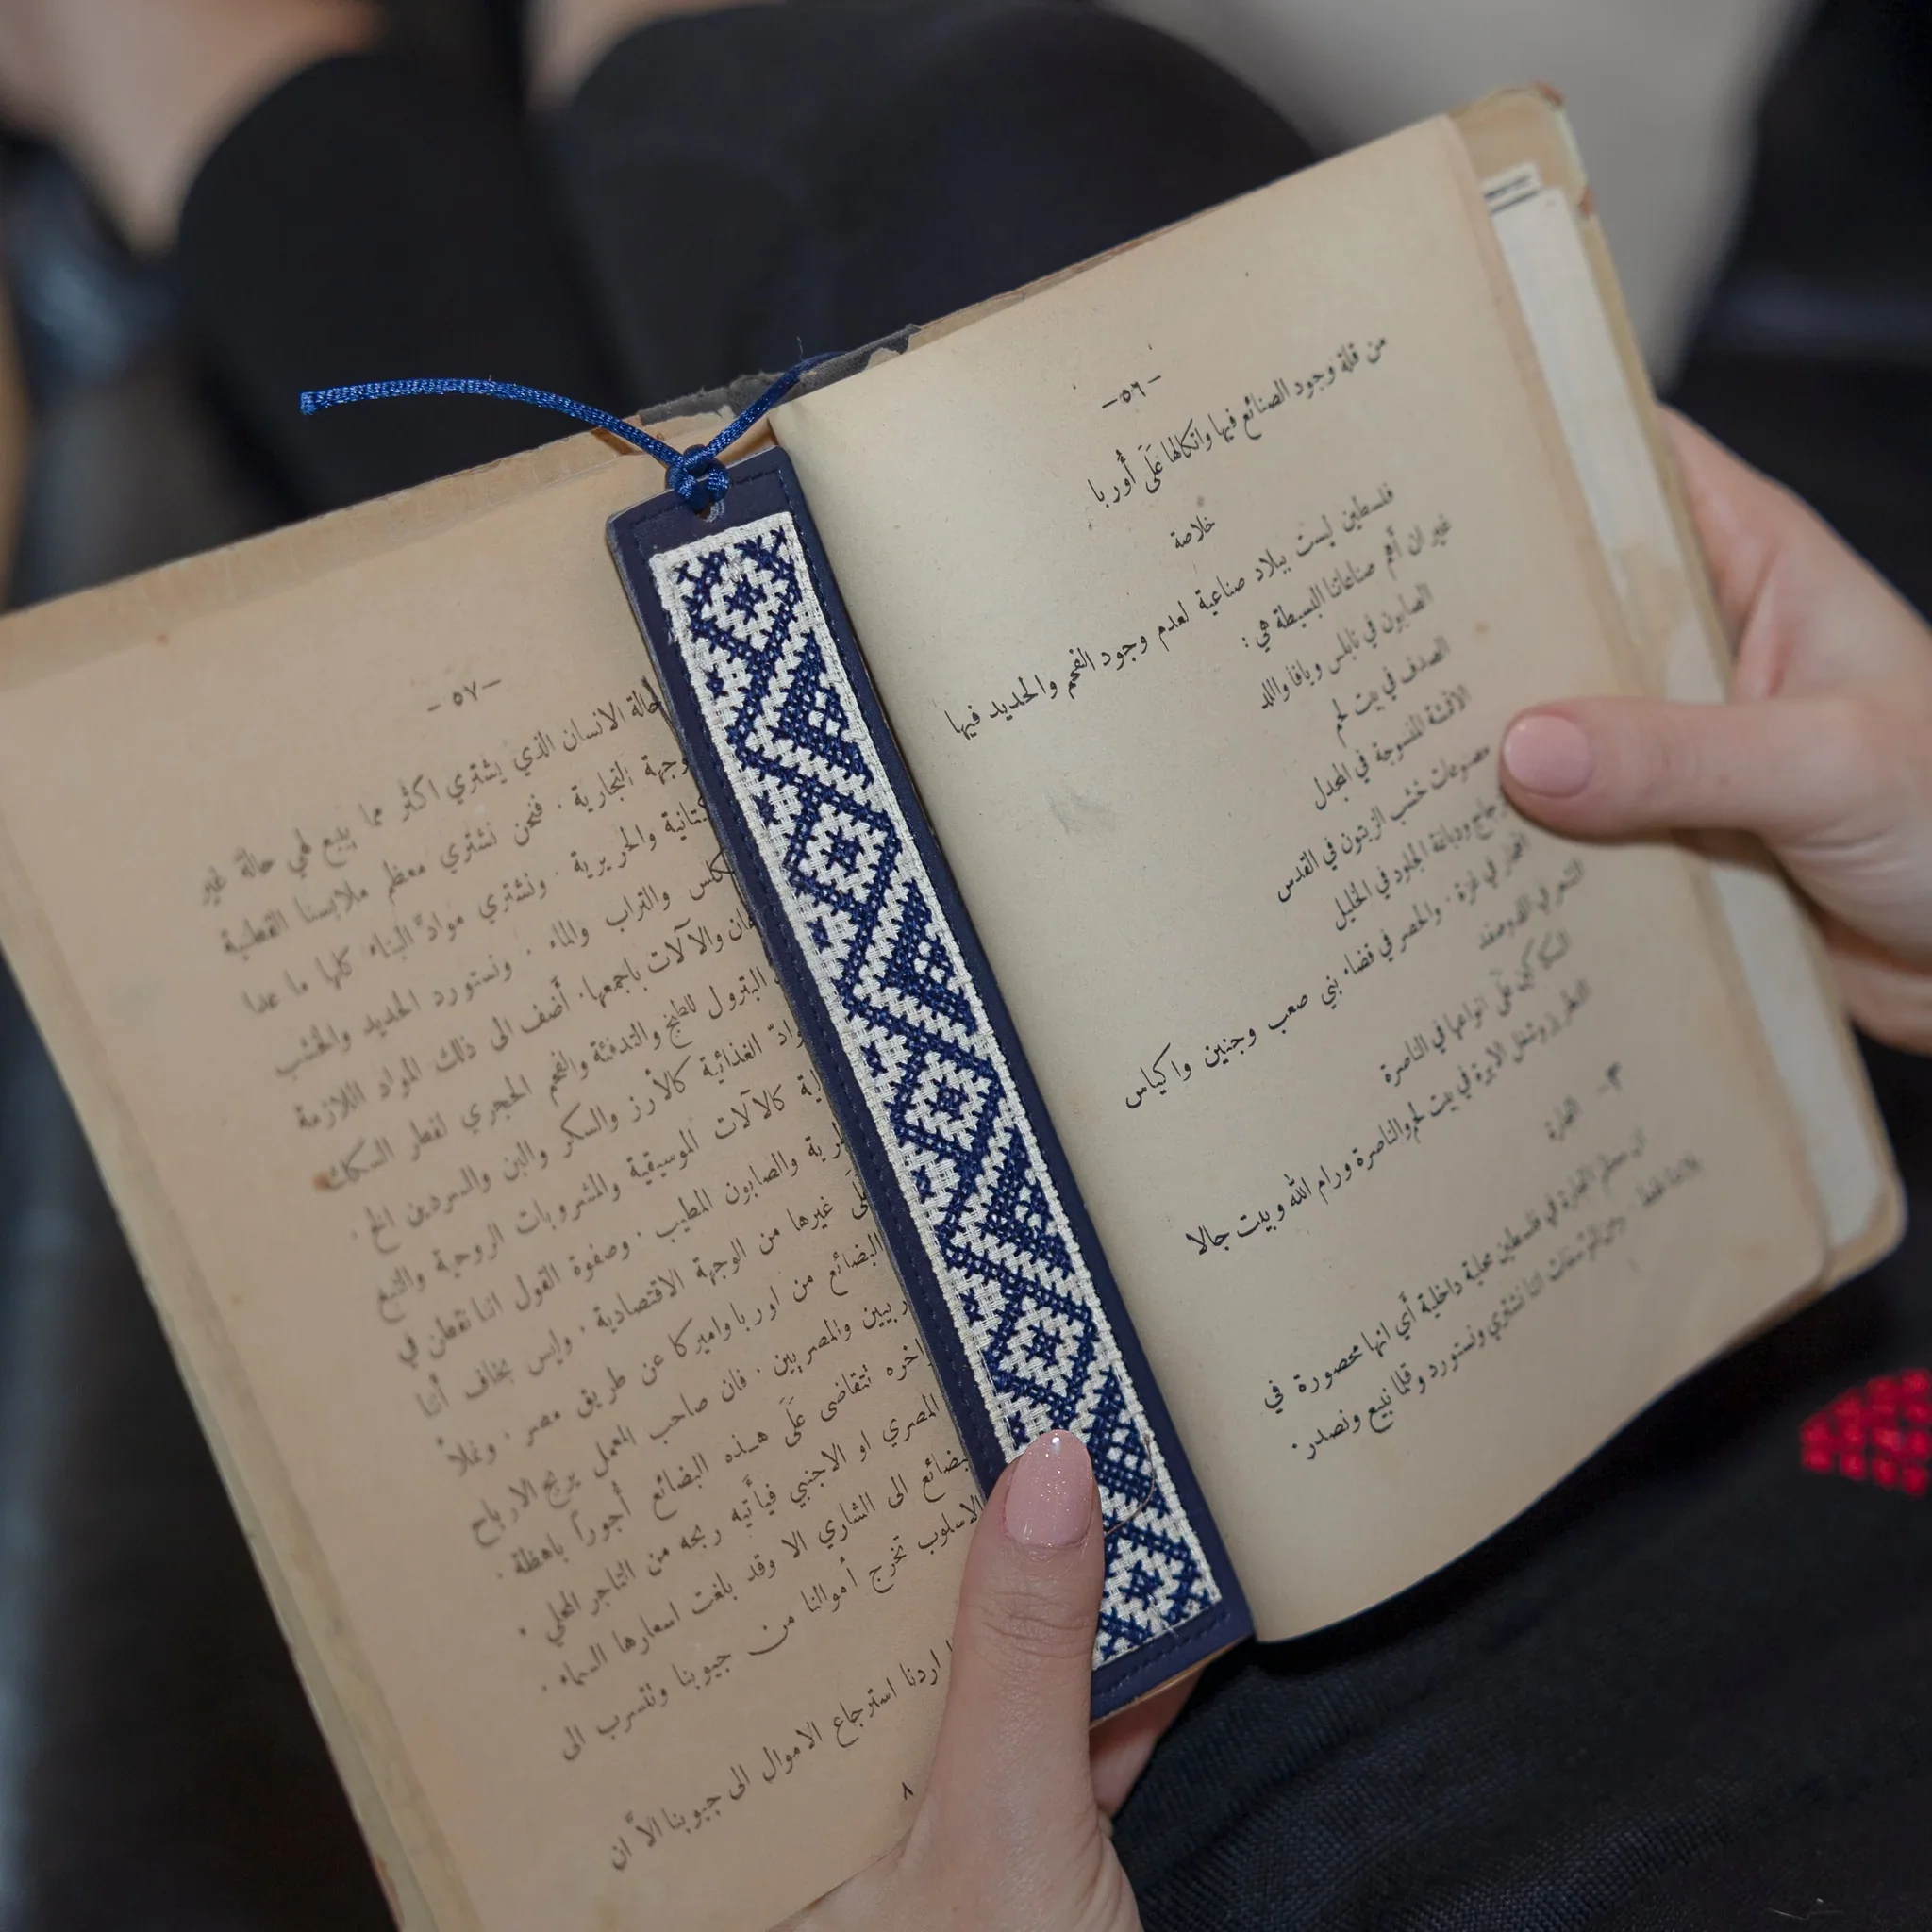 -٥٦-
من قلة وجود الصنائع فيها واتكالها عَلَى أُوربا
خلاصة
فلسطين ليست ببلاد صناعية لعدم وجود الفحم والحديد فيها
غير ان أهم صناعاتنا البسيطة هي :
الصابون في نابلس ويافا واللد
الصدف في بيت لحم
الاقمشة المنسوجة في المجدل
مصنوعات خشب الزيتون في القدس
ودباغة الجلود في الخليل
الفخار في غزة . والحصر في قضاء بني صعب وجنين واكياس
الشعر في القدس وصفد
السكاكين عَلَى انواعها في الناصرة
التطريز وشغل الابرة في بيت لحم والناصرة ورام الله وبيت جالا
٣- التجارة
ان معظم التجارة في فلسطين محلية داخلية أي انها محصورة في
اننا نشتري ونستورد وقلما نبيع ونصدر .
-٥٧-
حالة الانسان الذي يشتري اكثر مما يبيع لهي حالة غير
وجهة التجارية . فنحن نشتري معظم ملابسنا القطنية
والحريرية . ونشتري موادّ البناء كلها ما عدا
والتراب والماء . ونستورد الحديد والخشب
والآلات باجمعها . أضف الى ذلك المواد اللازمة
البترول للطبخ والتدفئة والفحم الحجري لقطر السكك
الغذائية كالأرز والسكر والبن والسردين الخ .
كالآلات الموسيقية والمشروبات الروحية والتبغ
والصابون المطيب . وصفوة القول اننا نقطن في
غيرها من الوجهة الاقتصادية . وليس بخاف أننا
البضائع من اوربا واميركا عن طريق مصر . وفعلاً
والمصريين . فان صاحب المعمل يربح الارباح
تتقاضى عَلَى هذه البضائع أجوراً باهظة .
المصري او الاجنبي فيأتيه ربحه من التاجر المحلي .
الى الشاري الا وقد بلغت اسعارها السماء .
الاسلوب تخرج أموالنا من جيوبنا وتتسرب الى
اردنا استرجاع الاموال الى جيوبنا الاَّ ان
٨